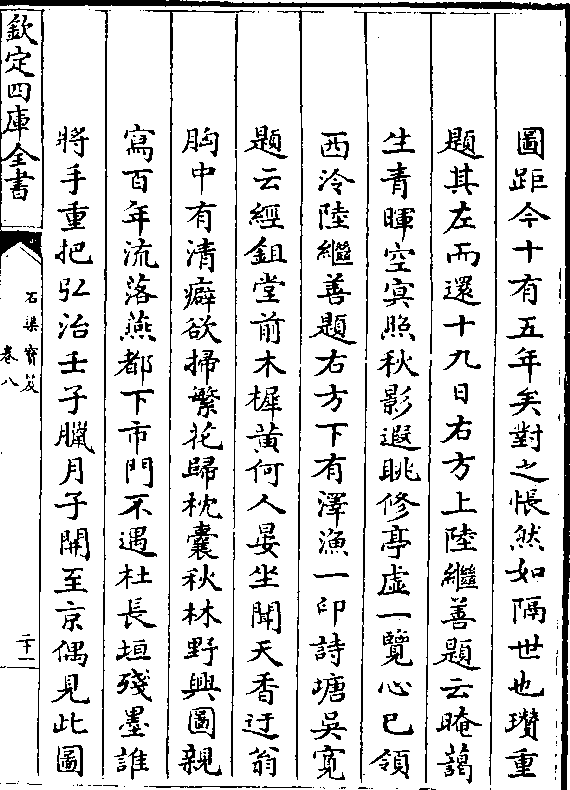 圖距今十有五年矣對之悵然如隔世也瓚重
題其左而還十九日右方上陸繼善題云晻藹
生青暉空㝠照秋影遐眺修亭虛一覽心已領
西泠陸繼善題右方下有澤漁一印詩塘吳寛
題云經鉏堂前木樨黄何人晏坐聞天香迂翁
胸中有清癖欲掃繁花歸枕囊秋林野興圖親
寫百年流落燕都下市門不遇杜長垣殘墨誰
將手重把弘治壬子臘月子開至京偶見此圖
欽定四庫全書
石渠寳笈
卷八
二十一